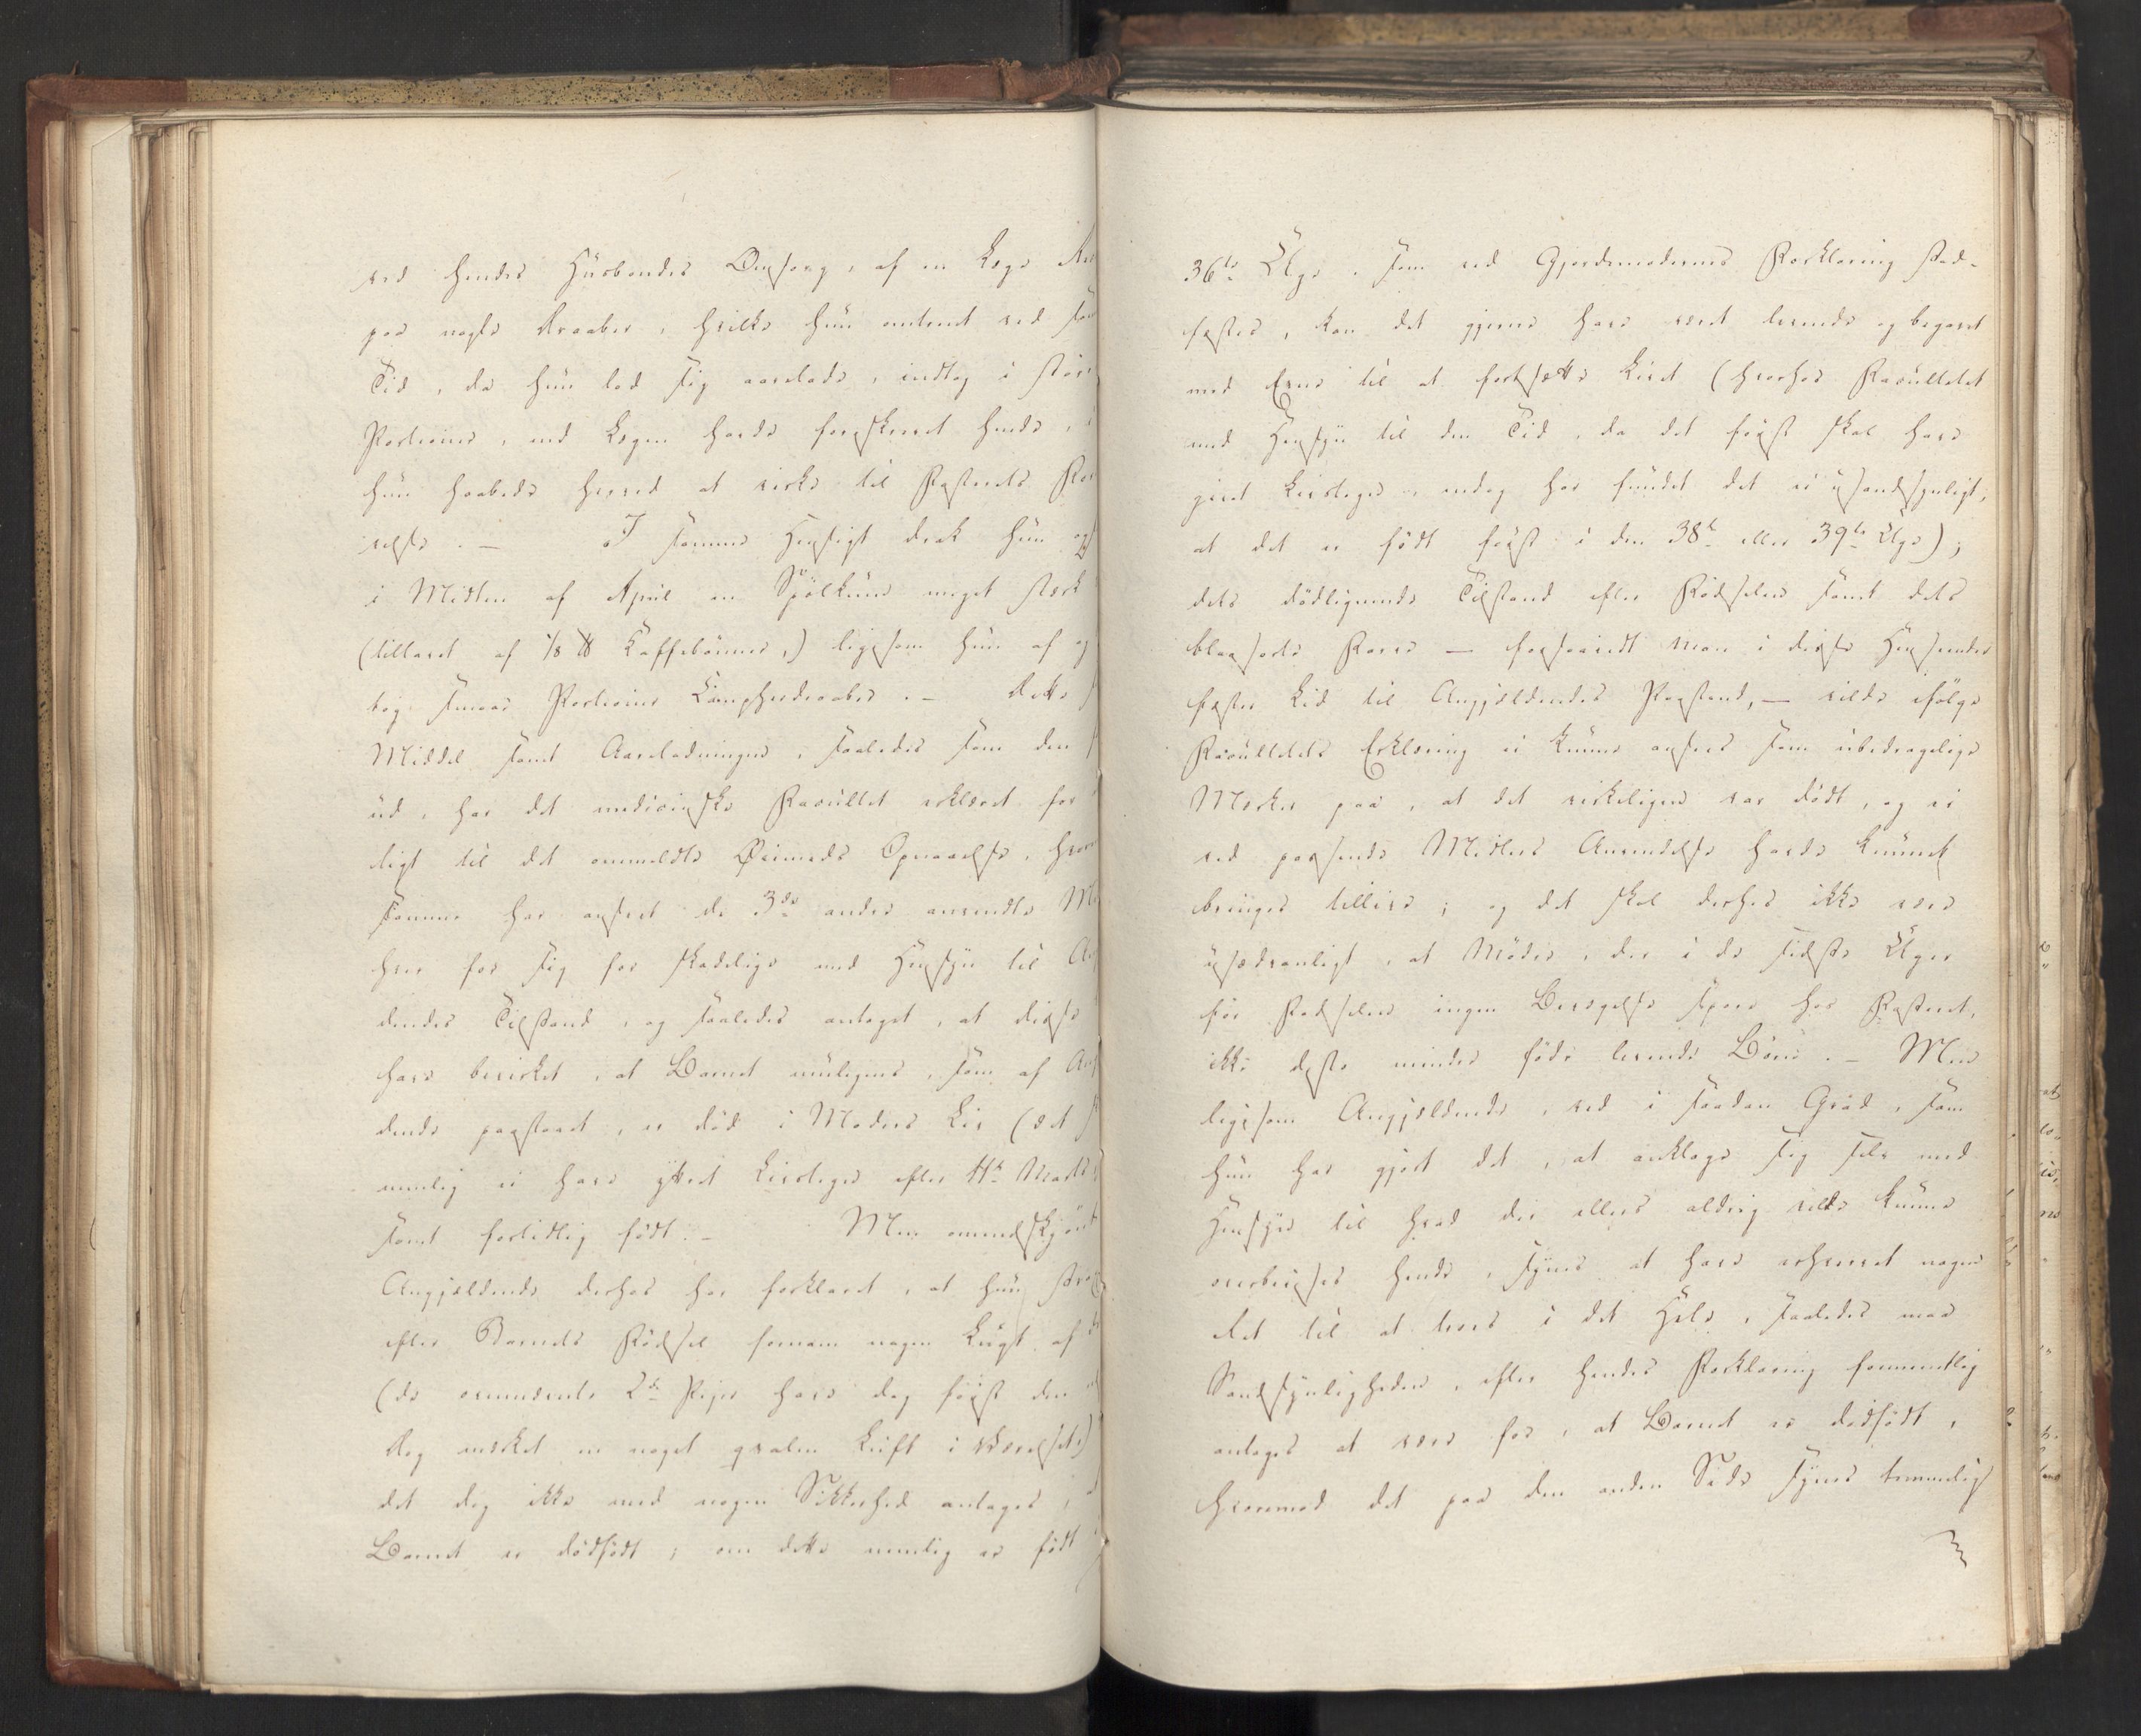 ved hendes Huusbondes Omsorg, af en Læge
paa nogle Draaber, hvilke hun omtrent ved sam
Tid, da hun lod sig aarelade, indtog i større
Portioner, end Lægen havde foreskrevet hende,
hun haabede herved at virke til Fosterets For
relse. — I samme Hensigt drak hun og
i Midten af April en Spølkum meget stærk
(tillavet af 1/8 ℔ Kaffebønner,) ligesom hun af og
tog smaae Portioner Kampherdraaber. — Dette
Middel samt Aareladningen, saaledes som den
ud, har det medicinske Facultet erklæret for
ligt til det ommeldte Øiemeds Opnaaelse, hvor
samme har anseet de 3de andre anvendte Mi
hver for sig for skadelige med Hensyn til An
dendes Tilstand, og saaledes antaget, at disse
have bevirket, at Barnet muligens, som af An
dende paastaaet, er død i Moders Liv (det
nemlig ei have yttret Livstegn efter 11te Marts
samt fortidlig født. — Men omendskjønt
Angjældende derhos har forklaret, at hun strax
efter Barnets Fødsel fornam nogen Lugt af
(de ovennævnte 2de Piger have dog først den
Dag mærket en noget qvalm Luft i Værelset)
det dog ikke med nogen Sikkerhed antages,
Barnet er dødfødt; om dette nemlig er født
36te Uge, som ved Gjordemoderens Forklaring stad-
fæstes, kan det gjerne have været levende og begavet
med Evne til at fortsætte Livet (hvorhos Facultetet
med Hensyn til den Tid, da det først skal have
givet Livstegn, endog har fundet det ei usandsynligt,
at det er født først i den 38te eller 39te Uge);
dets dødlignende Tilstand efter Fødselen samt dets
blaasorte Farve — forsaavidt man i disse Henseender
fæster Lid til Angjældendes Paastand, — vilde ifølge
Facultetets Erklæring ei kunne ansees som ubedragelige
Mærker paa, at det virkeligen var dødt, og ei
ved passende Midlers Anvendelse havde kunnet
bringes tillive; og det skal derhos ikke være
usædvanligt, at Mødre, der i de sidste Uger
før Fødselen ingen Bevægelse spore hos Fosteret,
ikke desto mindre føde levende Børn. — Men
ligesom Angjældende, ved i saadan Grad, som
hun har gjort det, at anklage sig selv med
Hensyn til hvad der ellers aldrig vilde kunne
overbevises hende, synes at have erhvervet nogen
Ret til at troes i det Hele, saaledes maa
Sandsynligheden, efter hendes Forklaring formentlig
antages at være for, at Barnet er dødfødt,
hvorimod det paa den anden Side synes temmelig